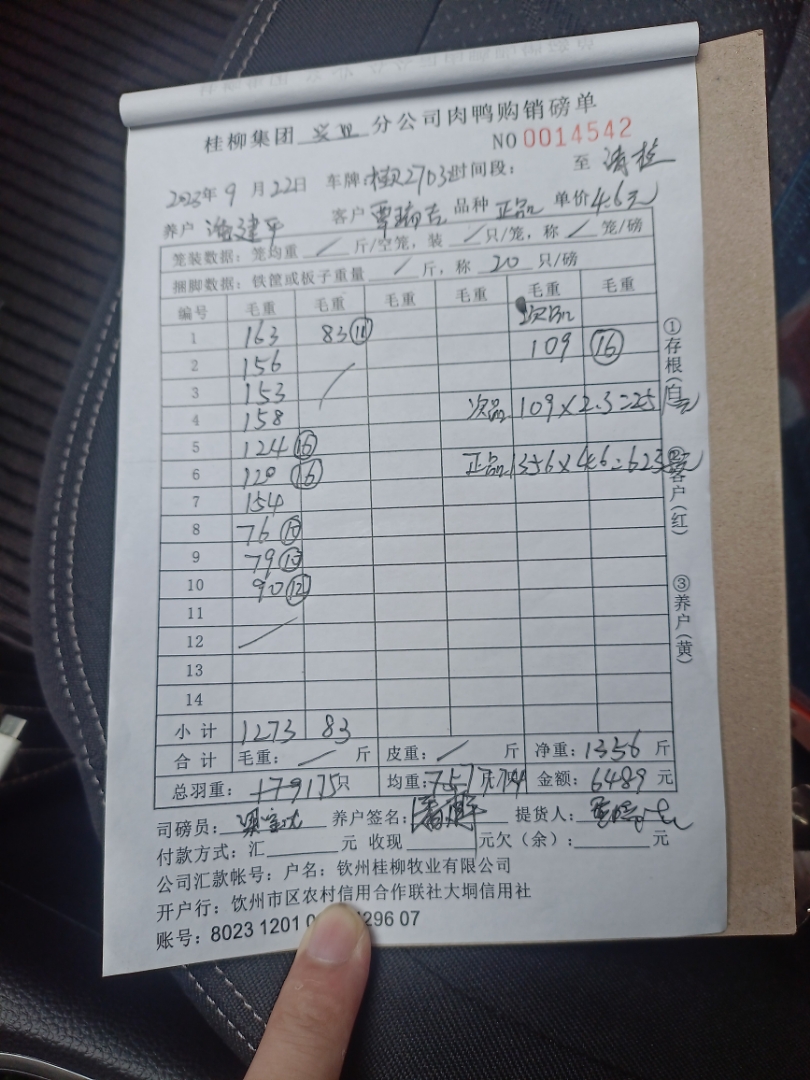 桂柳集团 分公司肉鸭购销磅单
NO 0014542
2023年9月22日 车牌: 2703 时间段: 至
养户 潘建平 客户 覃 品种 正品 单价 4.6元
笼装数据: 笼均重 / 斤/空笼, 装 / 只/笼, 称 / 笼/磅
捆脚数据: 铁筐或板子重量 / 斤, 称 20 只/磅
编号 毛重 毛重 毛重 毛重 毛重 毛重
次品
1 163 83 109 16
2 156 /
3 153 次品 109×2.3=251元
4 158
5 124 16 正品 1356×4.6=623
6 120 16
7 154
8 76 10
9 79 10
10 90 12
11
12
13
14
小计 1273 83
合计 毛重: / 斤 皮重: / 斤 净重: 1356 斤
总羽重: 175只 均重: 金额: 6489 元
司磅员: 养户签名: 提货人:
付款方式: 汇 元 收现 元欠(余): 元
公司汇款帐号: 户名: 钦州桂柳牧业有限公司
开户行: 饮州市区农村信用合作联社大垌信用社
账号: 8023 1201 296 07
①存根(白)
②客户(红)
③养户(黄)